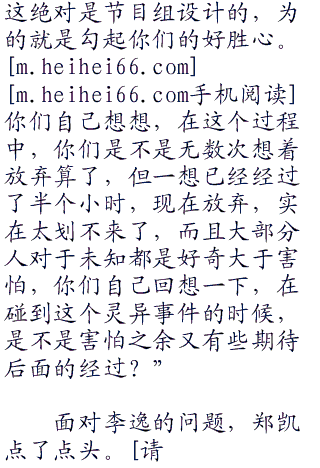 这绝对是节目组设计的，为
的就是勾起你们的好胜心。
[m.heihei66.com]
[m.heihei66.com手机阅读]
你们自己想想，在这个过程
中，你们是不是无数次想着
放弃算了，但一想已经经过
了半个小时，现在放弃，实
在太划不来了，而且大部分
人对于未知都是好奇大于害
怕，你们自己回想一下，在
碰到这个灵异事件的时候，
是不是害怕之余又有些期待
后面的经过？”
面对李逸的问题，郑凯
点了点头。[请